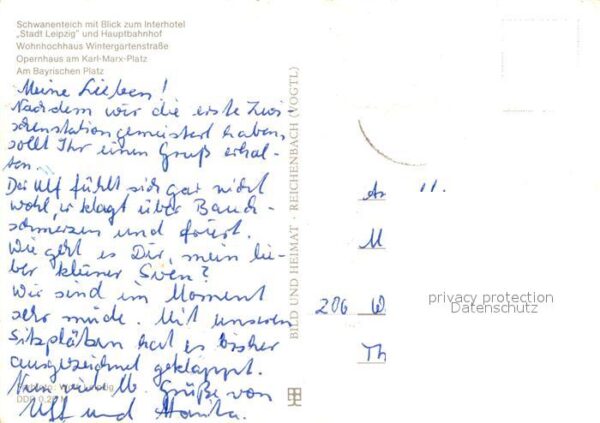 Schwanenteich mit Blick zum Interhotel
„Stadt Leipzig" und Hauptbahnhof
Wohnhochhaus Wintergartenstraße
Opernhaus am Karl-Marx-Platz
Am Bayrischen Platz
Meine Lieben!
Nachdem wir die erste Zwi
schenstation gemeistert haben,
sollt Ihr einen Gruß erhal-
ten.
Der Ulf fühlt sich gar nicht
wohl, er klagt über Bauch-
schmerzen und friert.
Wie geht es Dir, mein lie-
ber kleiner Sven?
Wir sind im Moment
sehr müde. Mit unseren
Sitzplätzen hat es bisher
ausgezeichnet geklappt.
Nun viele lb. Grüße von
DDR 0,20 M
Ulf und Monika.
BILD UND HEIMAT · REICHENBACH (VOGTL)
11.
M
206 W
Th
privacy protection
Datenschutz